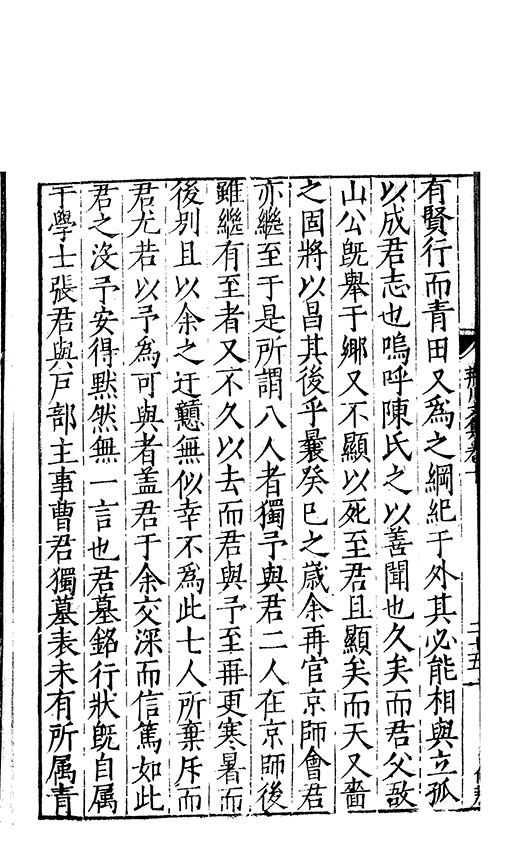 有賢行而青田又爲之綱紀于外其必能相與立孤
以成君志也嗚呼陳氏之以善聞也久矣而君父敔
山公旣舉于鄉又不顯以死至君且顯矣而天又嗇
之固將以昌其後乎曩癸巳之歲余再官京師會君
亦繼至于是所謂八人者獨予與君二人在京師後
雖繼有至者又不久以去而君與予至再更寒暑而
後别且以余之迂戇無似幸不爲此七人所棄斥而
君尤若以予爲可與者盖君于余交深而信篤如此
君之沒予安得默然無一言也君墓銘行狀旣自属
于學士張君與戸部主事曹君獨墓表未有所属青